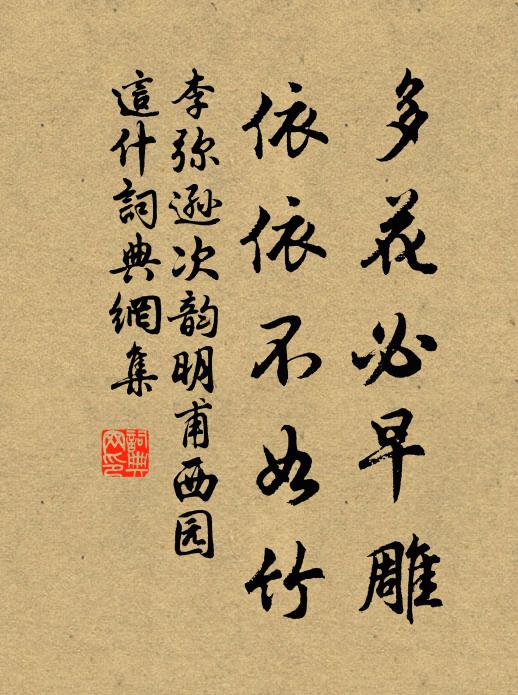 多花必早雕
依依不如竹
李弥遜次韵明甫西园
這什詞典網集
詞典网印